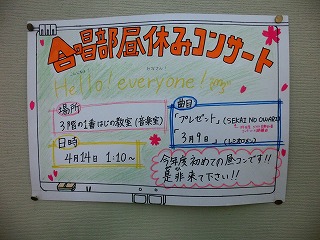 合唱部昼休みコンサート
Hello! everyone!
場所
3階の1番はじの教室(音楽室)
日時
4月14日 1:10~
曲目
「プレゼント」(SEKAI NO OWARI)
「3月9日」(レミオロメン)
今年度初めての昼コンです!!
是非来て下さい!!